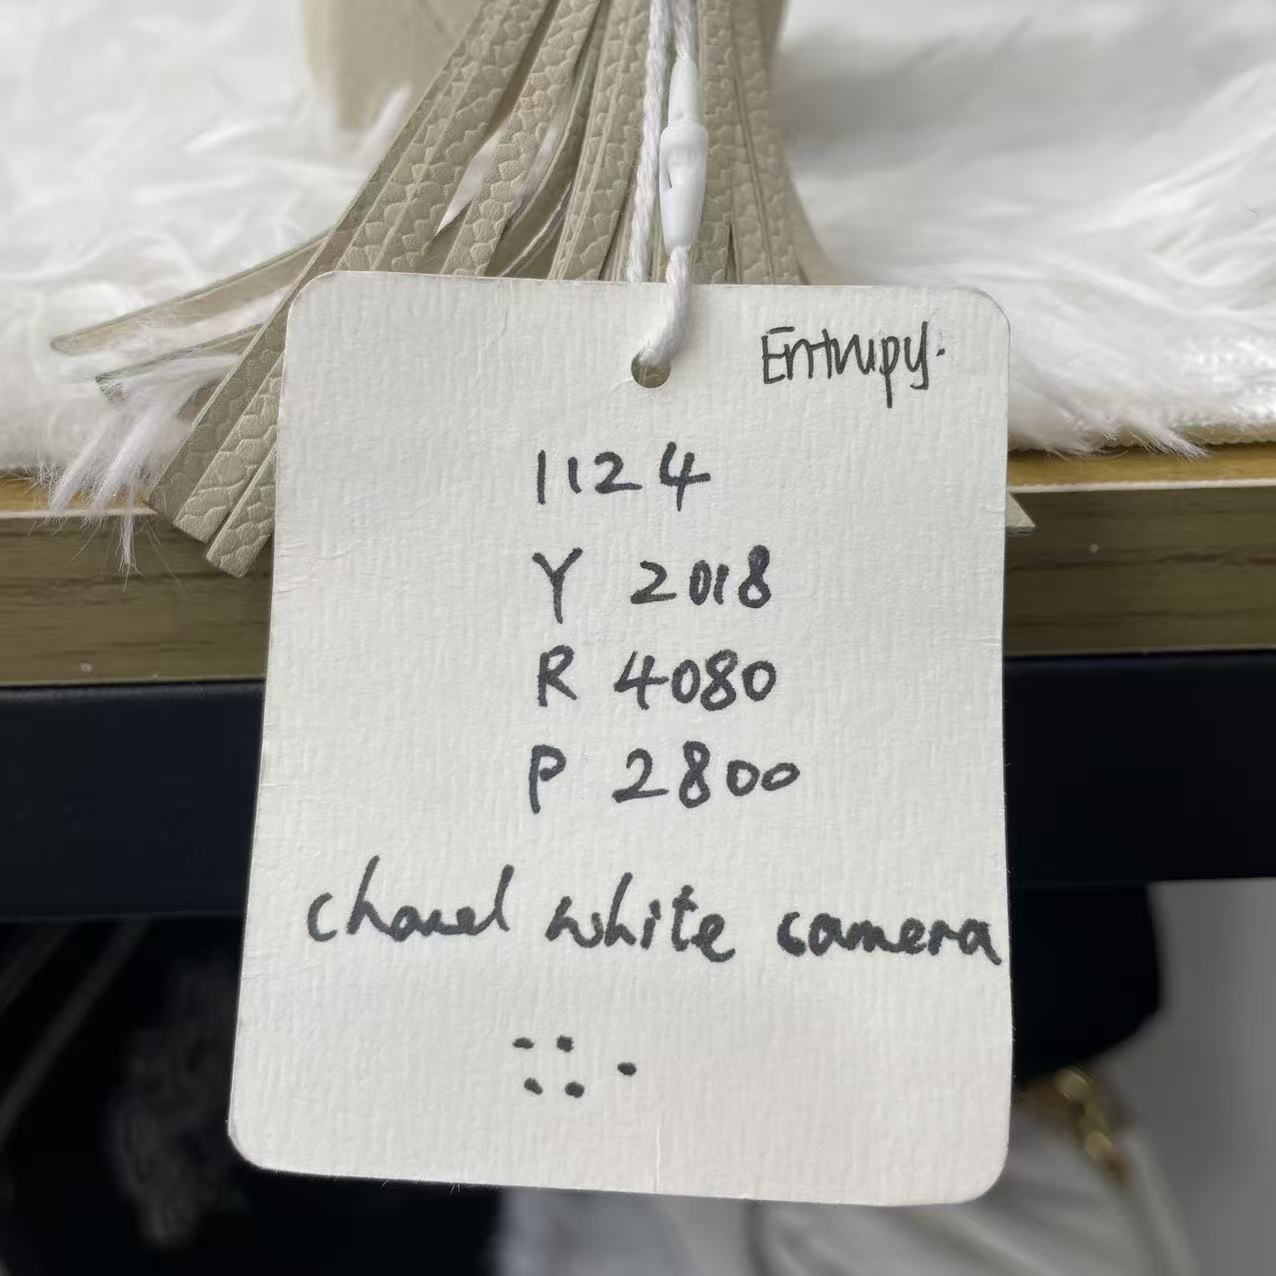 Entrupy.
1124
Y 2018
R 4080
P 2800
chanel white camera